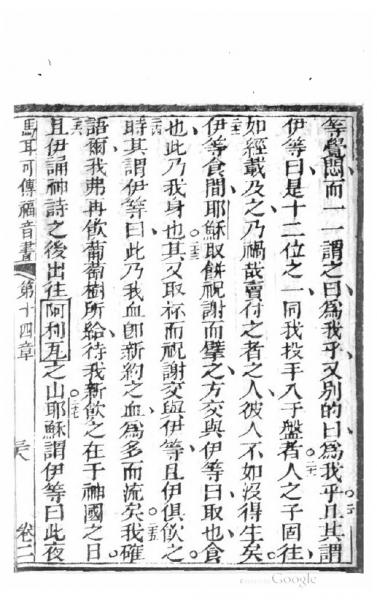 等覺悶而一一謂之曰為我乎又別的曰為我乎且其謂
二十
伊等曰是十二位之一同我投手入于盤者人之子固往
二一
如經載及之乃禍哉賣付之者之人彼人不如沒得生矣
二二
伊等食間耶穌取餅祝謝而擘之方交與伊等曰取也食
二三
也此乃我身也其又取杯而祝謝交與伊等且伊俱飲之
二四
時其謂伊等曰此乃我血即新約之血為多而流矣我確
二五
語爾我弗再飲葡萄樹所給待我新飲之在于神國之日
二六
且伊誦神詩之後出往阿利瓦之山耶穌謂伊等曰此夜
二七
馬耳可傳福音書 第十四章 卷二
Google